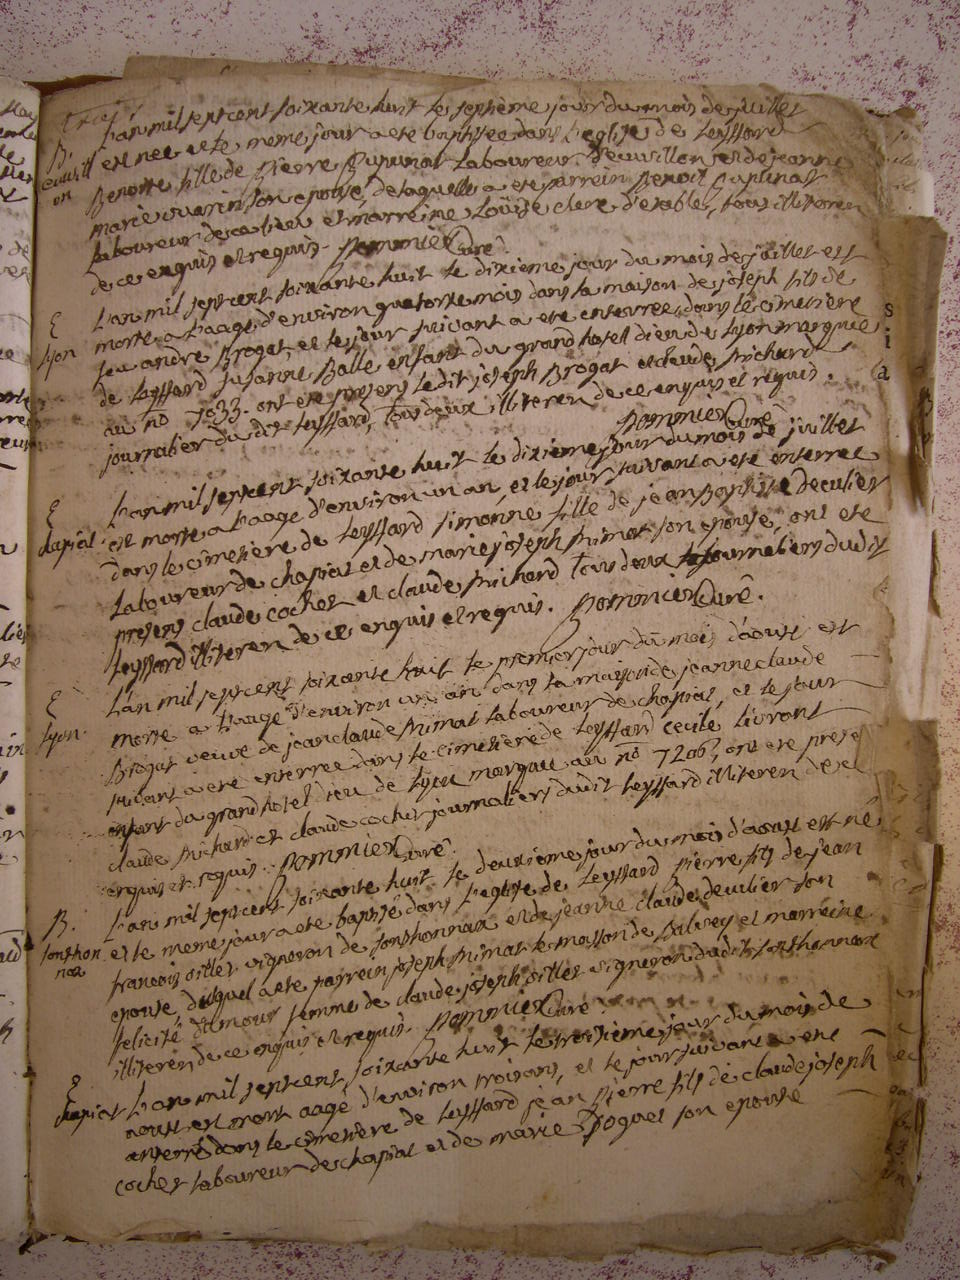 L'an mil sept cent soixante huit le septième jour du mois de juillet
B. est née et le meme jour a eté baptisée dans l'eglise de Leyssard
cuvill on Benoite fille de Pierre Pupunat Laboureur de cuvillon et de jeanne
marie Guarin son epouse, de laquelle a eté parrein Benoit Pupunat
laboureur de ce lieu et marreine Louise clere d'etables, tous illiteren
de ce enquis et requis. Pommier Curé.
E L'an mil sept cent soixante huit le dixieme jour du mois de juillet est
Lyon morte a l'aage d'environ quatorze mois dans la maison de joseph fils de
feu andré Brogat, et le jour suivant a eté enterrée dans le cimetiere
de Leyssard Susanne Balle enfant du grand hotel dieu de Lyon marquée
au no 7033. ont eté presens ledit joseph Brogat et claude Michard
journalier du dit Leyssard, tous deux illiteren de ce enquis et requis.
Pommier Curé
E L'an mil sept cent soixante huit le dixieme jour du mois de juillet
chapiat. est morte a l'aage d'environ un an, et le jour suivant a eté enterrée
dans le cimetiere de Leyssard Simonne fille de jean Baptiste Deculier
Laboureur de chapiat et de marie joseph Mimat son epouse, ont eté
presens claude cochet et claude Michard tous deux journaliers du dit
Leyssard illiteren de ce enquis et requis. Pommier Curé.
E L'an mil sept cent soixante huit le premier jour du mois d'aoust est
Lyon. morte a l'aage d'environ un an dans la maison de jeanne claude
Brogat veuve de jean claude Mimat laboureur de chapiat, et le jour
suivant a eté enterrée dans le cimetiere de Leyssard Cecile Livront
enfant du grand hotel dieu de Lyon marquée au no 7206, ont eté prese
claude Michard et claude cochet journaliers du dit Leyssard illiteren de ce
enquis et requis. Pommier Curé.
B. L'an mil sept cent soixante huit le deuxieme jour du mois d'aoust est né
sonthon nax et le meme jour a eté baptisé dans l'eglise de Leyssard Pierre fils de jean
francois Billet vigneron de sonthonnax et de jeanne claude deculier son
epouse, duquel a eté parrein joseph Mimat le masson de Balvey et marreine
felicité d'Amour femme de claude joseph Billet vigneron du dit sonthonnax
illiteren de ce enquis et requis. Pommier Curé.
E L'an mil sept cent soixante huit le troisieme jour du mois de
chapiat aoust est mort aagé d'environ trois ans, et le jour suivant a eté
enterré dans le cimetiere de Leyssard jean Pierre fils de claude joseph
cochet laboureur de chapiat et de marie Poguet son epouse